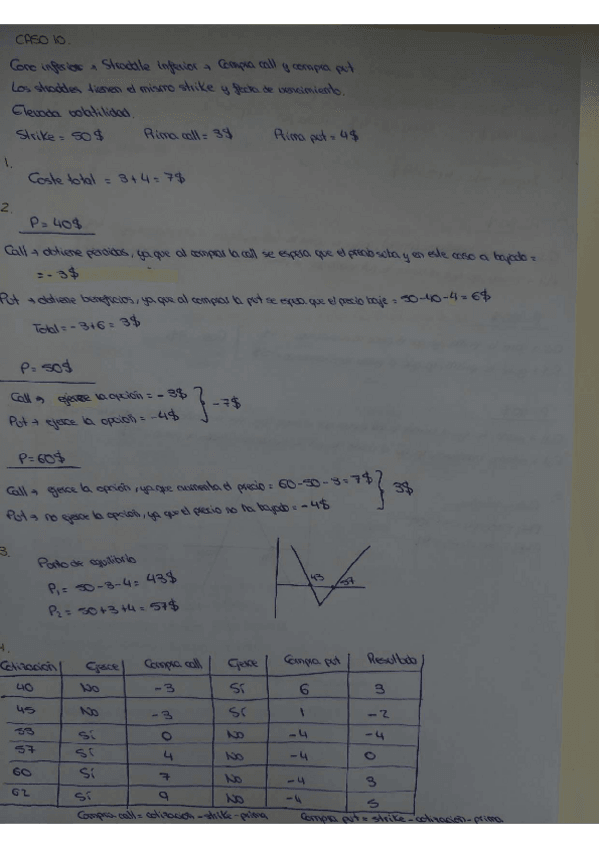 CASO 10.
Cono inferior → Straddle inferior → Compra call y compra put
Los straddles tienen el mismo strike y fecha de vencimiento.
Elevada volatilidad.
Strike = 50$ Prima call = 3$ Prima put = 4$
1.
Coste total = 3+4 = 7$
2.
P = 40$
Call → obtiene pérdidas, ya que al comprar la call se espera que el precio suba y en este caso a bajado =
= -3$
Put → obtiene beneficios, ya que al comprar la put se espera que el precio baje = 50-40-4 = 6$
Total = -3+6 = 3$
P = 50$
Call → ejerce la opción = -3$
Put → ejerce la opción = -4$ } -7$
P = 60$
Call → ejerce la opción, ya que aumenta el precio = 60-50-3 = 7$
Put → no ejerce la opción, ya que el precio no ha bajado = -4$ } 3$
3.
Punto de equilibrio
P1 = 50-3-4 = 43$
P2 = 50+3+4 = 57$
43 57
4.
Cotización Ejerce Compra call Ejerce Compra put Resultado
40 No -3 Sí 6 3
45 No -3 Sí 1 -2
53 Sí 0 No -4 -4
57 Sí 4 No -4 0
60 Sí 7 No -4 3
62 Sí 9 No -4 5
Compra call = cotización - strike - prima Compra put = strike - cotización - prima